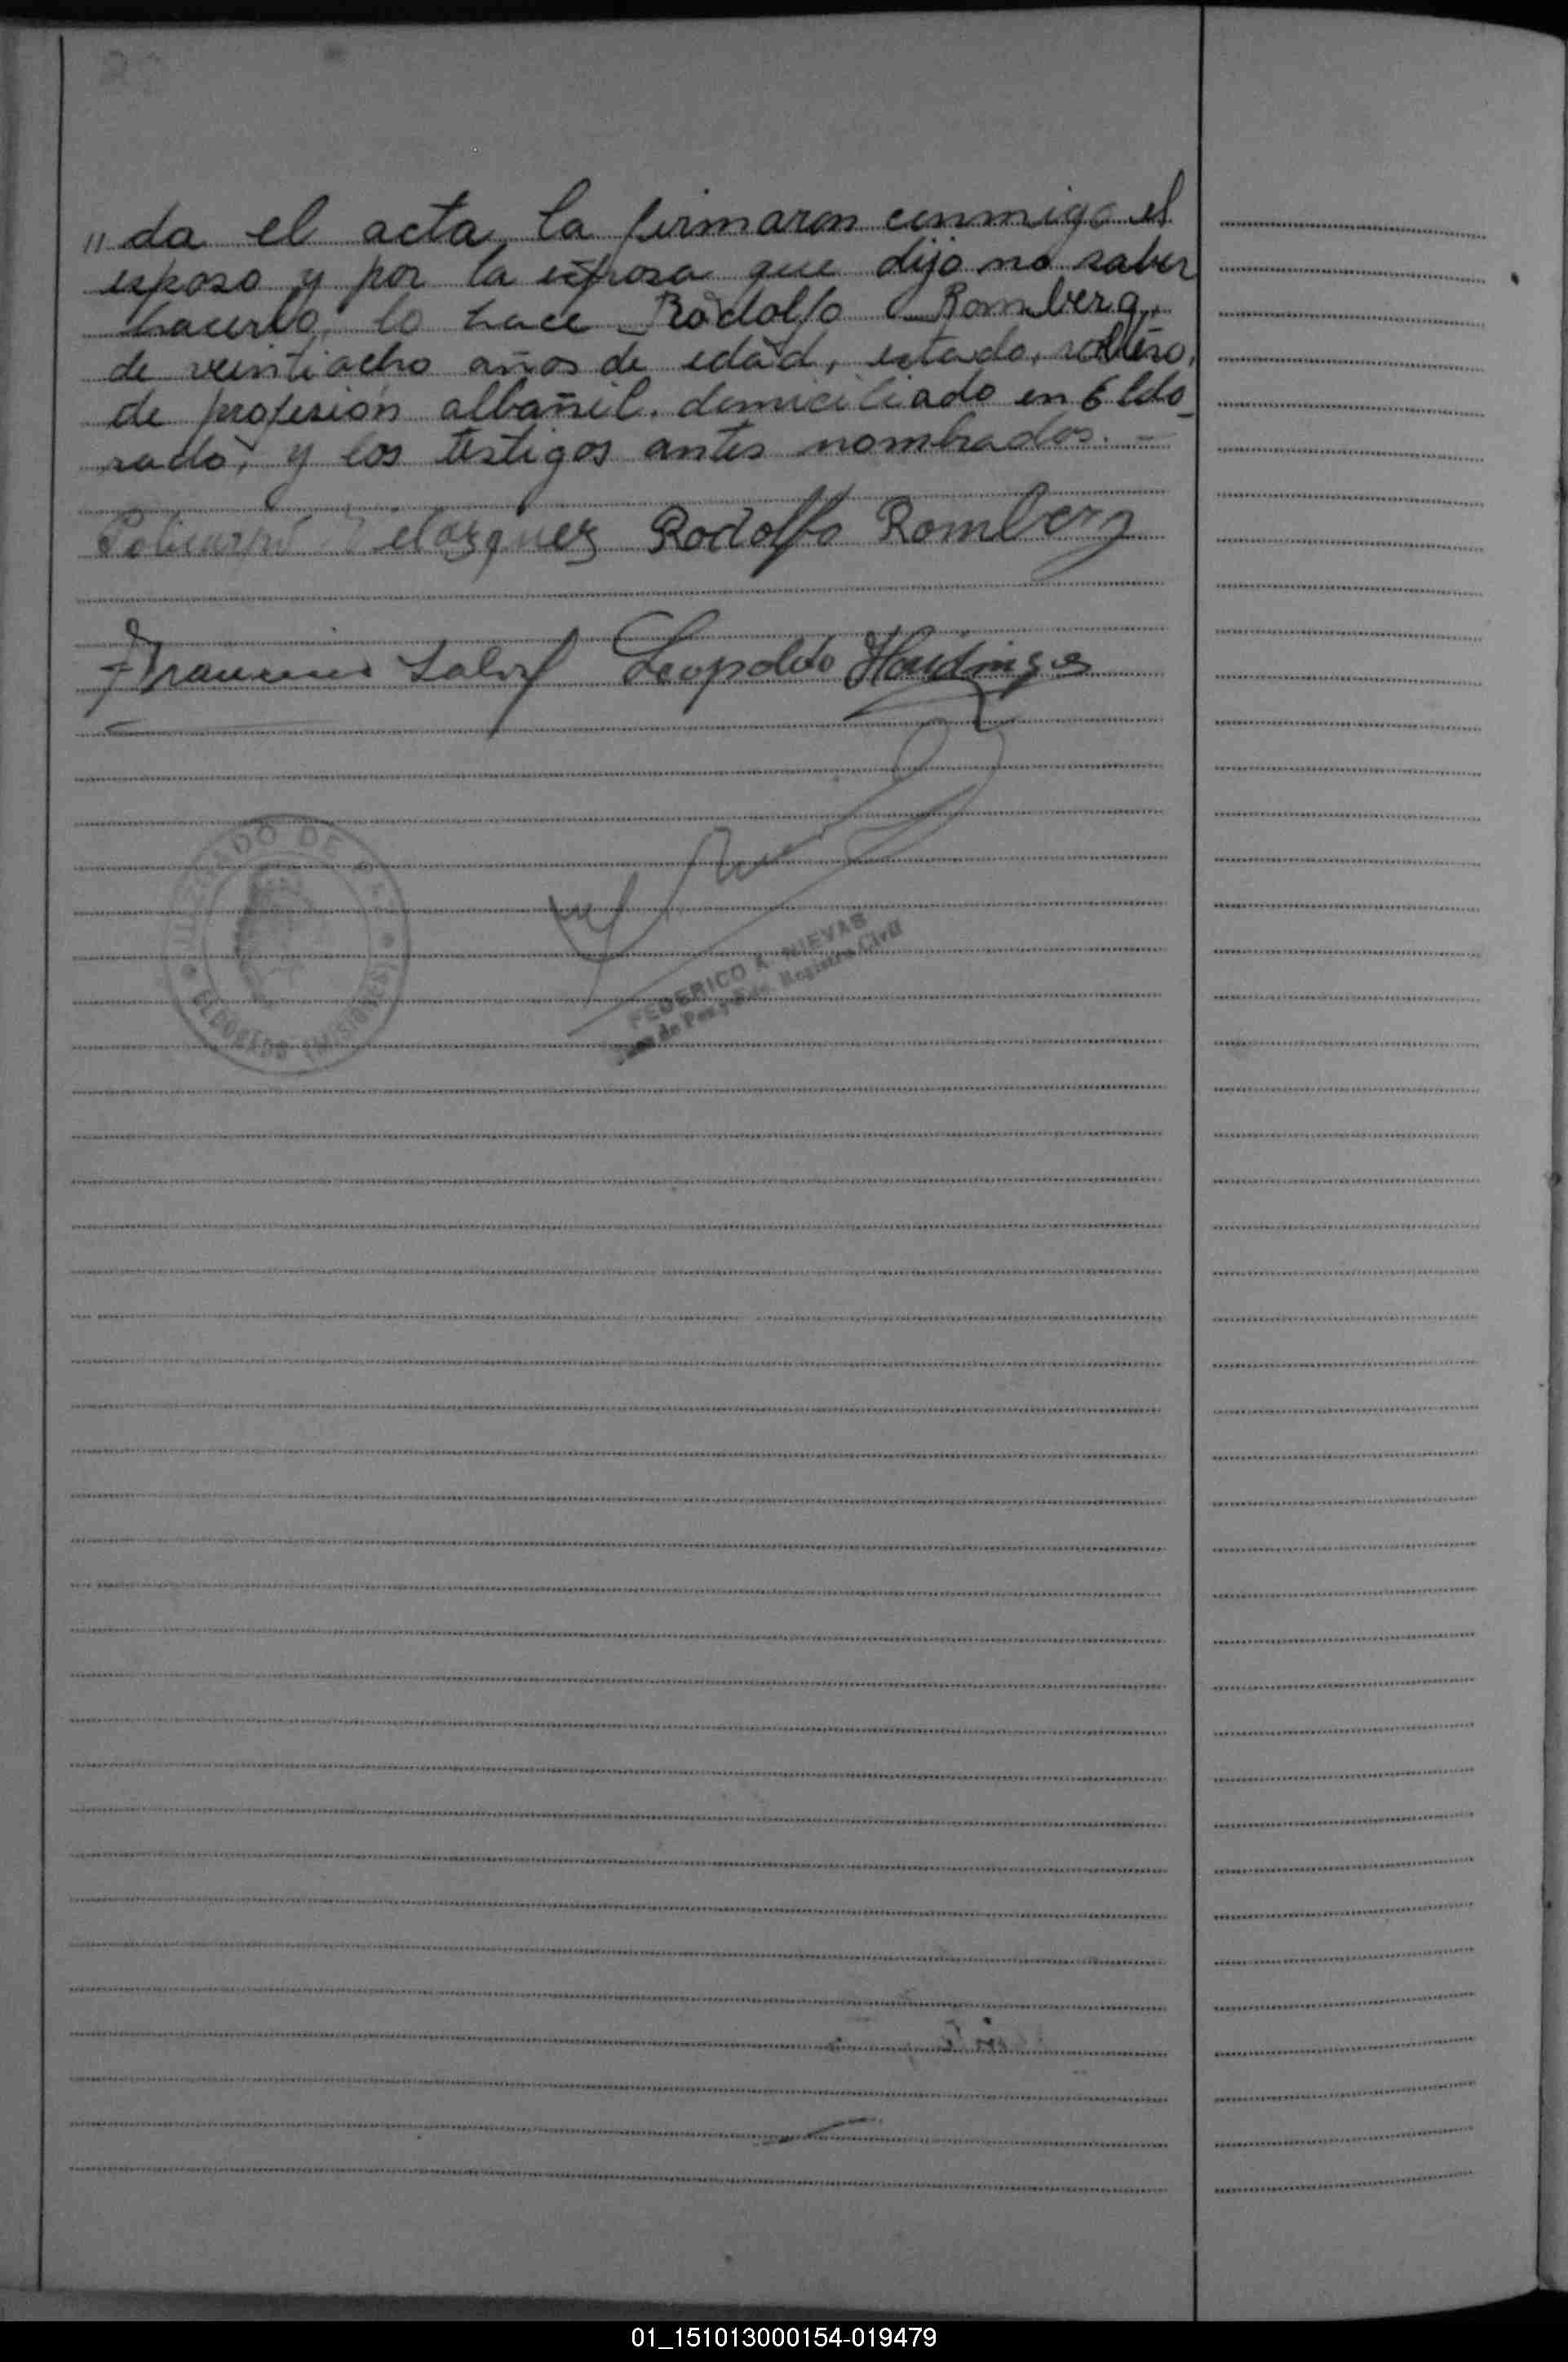 "da el acta, la firmaron conmigo el
esposo y por la esposa que dijo no saber
hacerlo, lo hace Rodolfo Romberg,
de veintiocho años de edad, estado, soltero,
de profesión albañil. domiciliado en Eldo_
rado, y los testigos antes nombrados. -
Velazquez Rodolfo Romberg
Leopoldo
JUZGADO DE PAZ
ELDORADO (MISIONES)
FEDERICO A. NIEVAS
Juez de Paz y Enc. Registro Civil
01_151013000154-019479